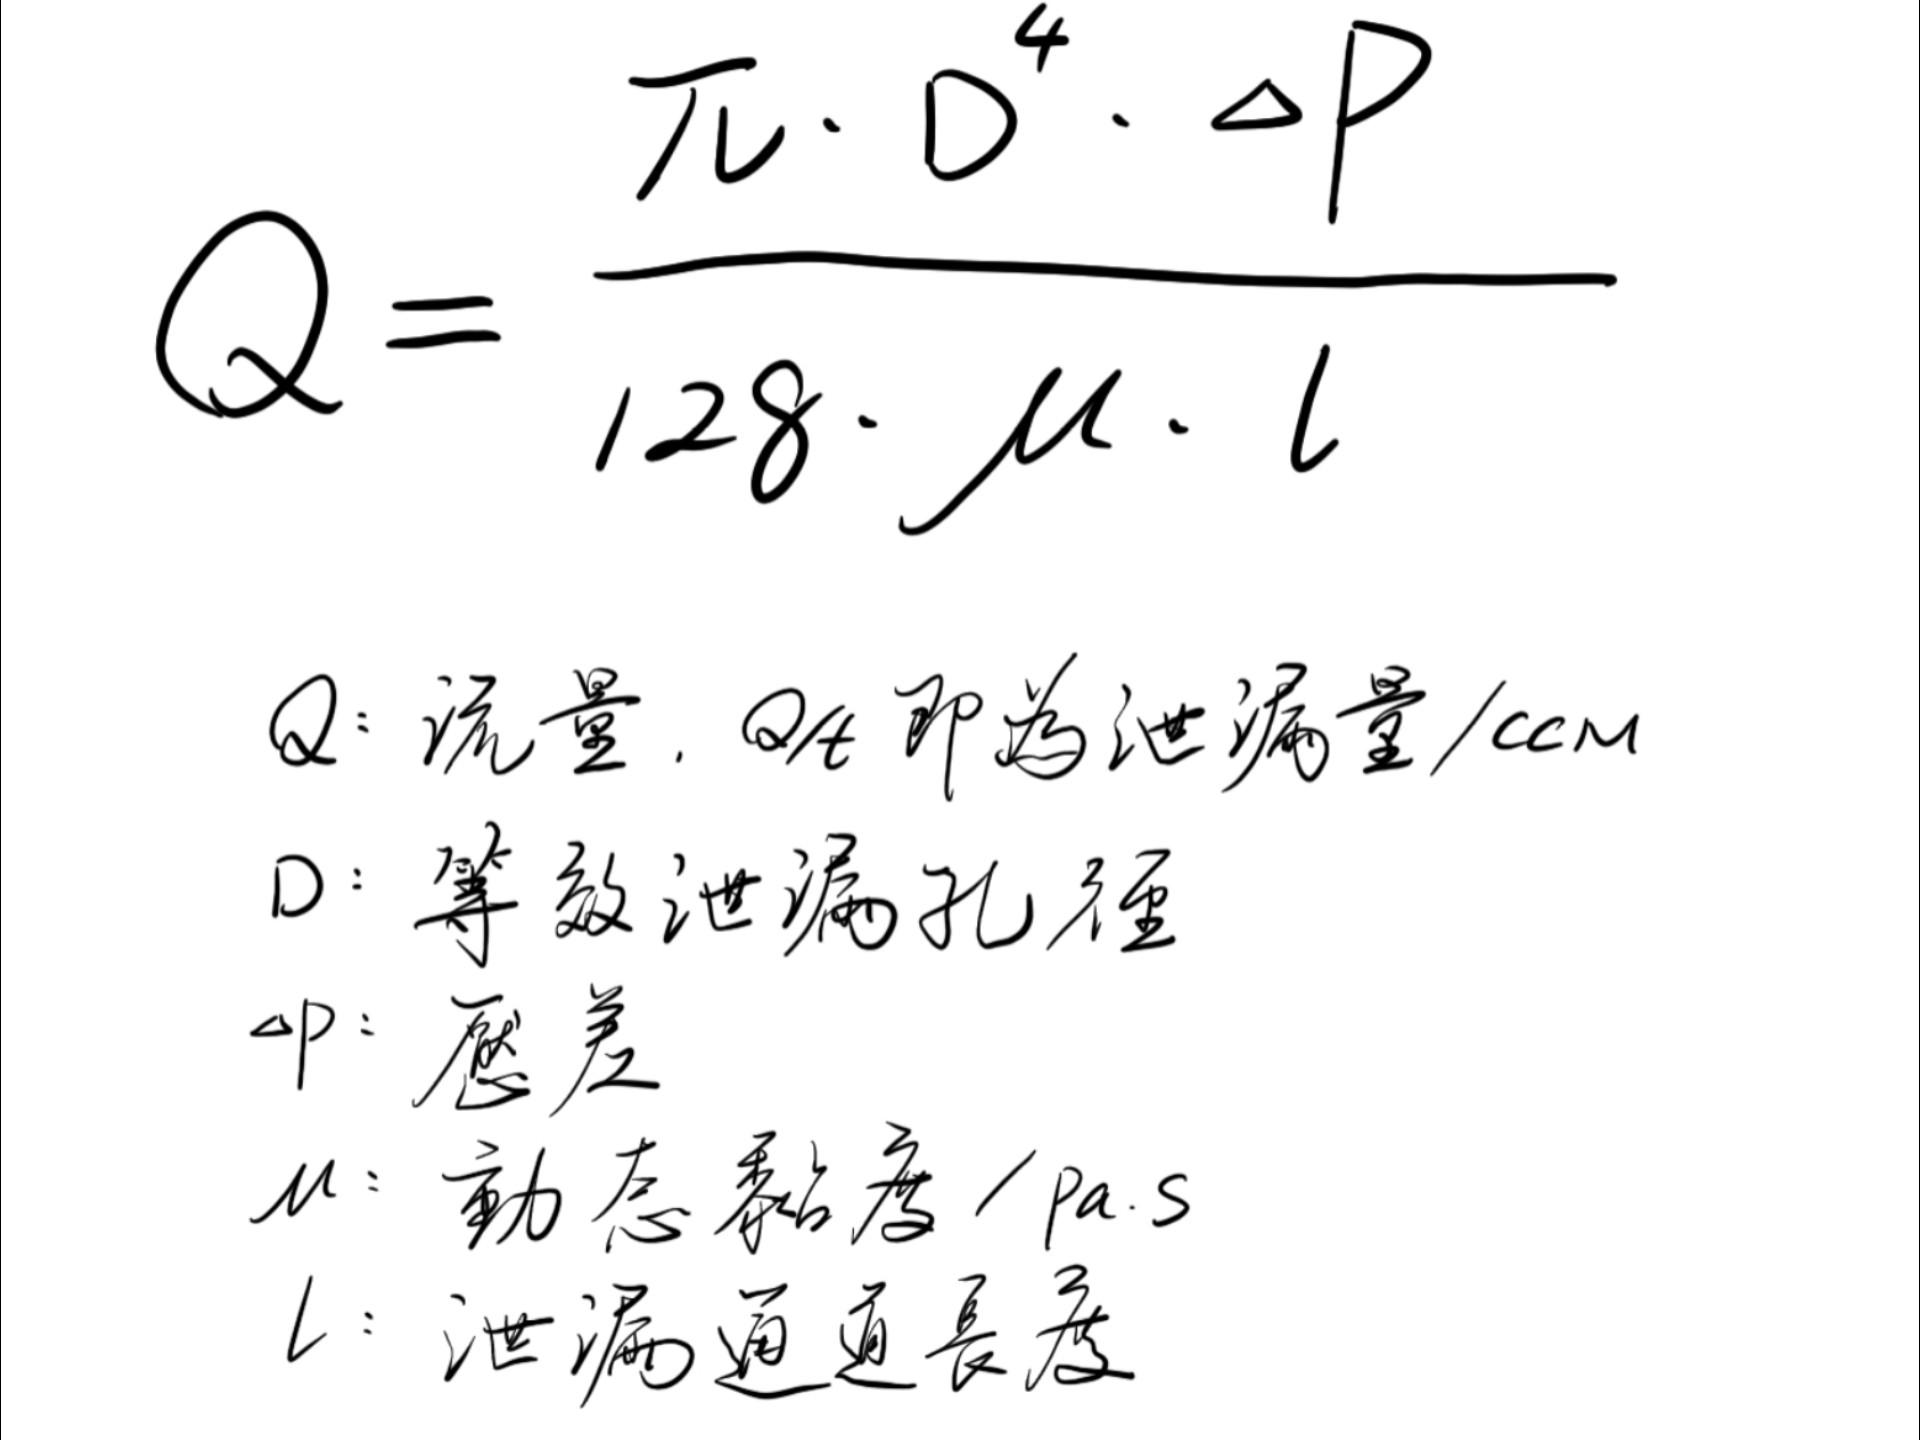 Q = π · D⁴ · ΔP / 128 · μ · l
Q: 流量, Q/t 即為泄漏量/ccM
D: 等效泄漏孔徑
ΔP: 壓差
μ: 動态黏度/pa.s
l: 泄漏通道長度